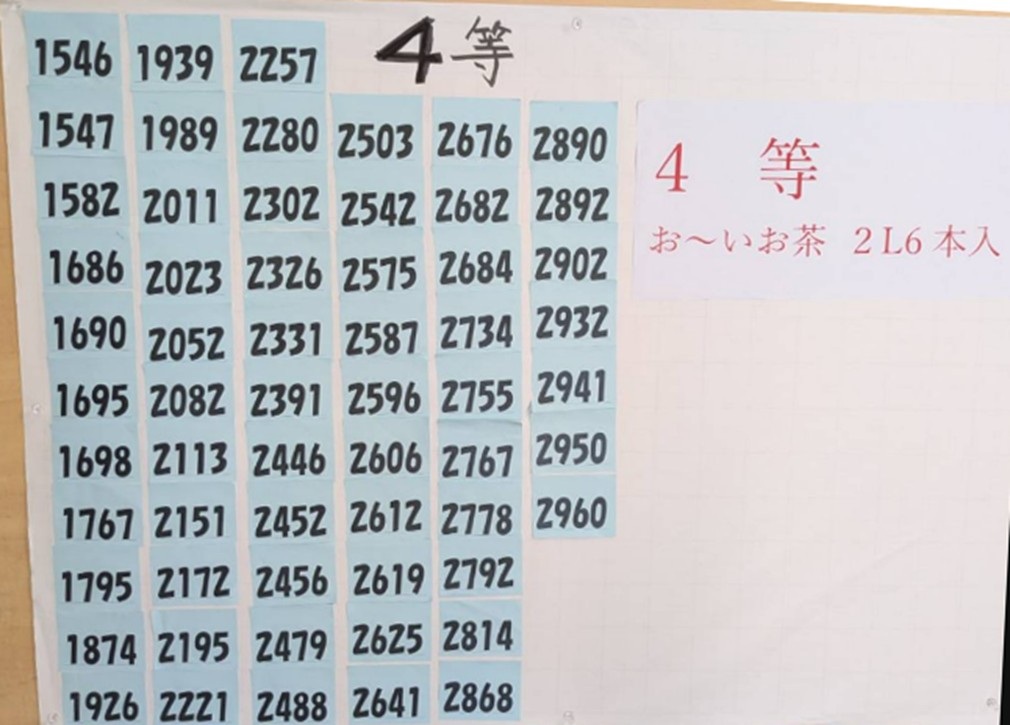 4等
1546 1939 2257
1547 1989 2280 2503 2676 2890
1582 2011 2302 2542 2682 2892
1686 2023 2326 2575 2684 2902
1690 2052 2331 2587 2734 2932
1695 2082 2391 2596 2755 2941
1698 2113 2446 2606 2767 2950
1767 2151 2452 2612 2778 2960
1795 2172 2456 2619 2792
1874 2195 2479 2625 2814
1926 2221 2488 2641 2868
4 等
お〜いお茶 2L6本入